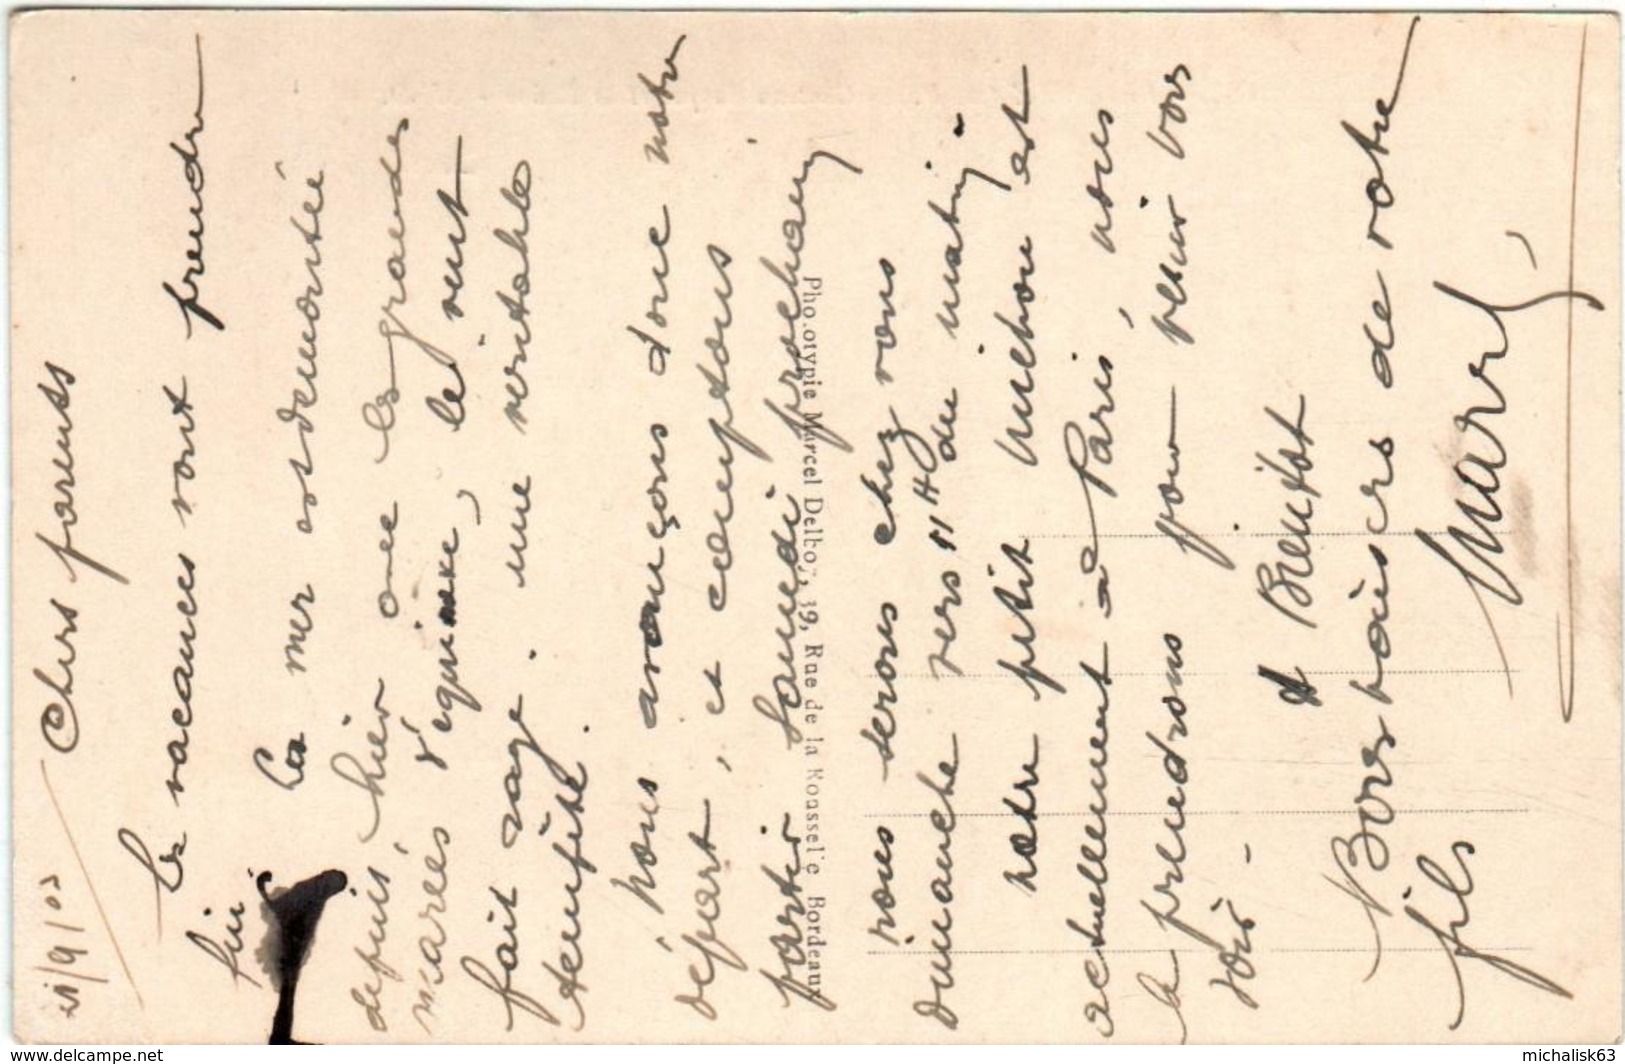 Chers parents
Les vacances vont prendre
fin.
La mer est démontée
depuis hier avec les grandes
marées d'équinoxe, le vent
fait rage. une véritable
tempête.
Nous avançons donc notre
départ, et comptons
partir samedi prochain
nous serons chez vous
dimanche vers 11H du matin.
notre petit Michou est
actuellement à Paris, nous
le prendrons pour venir vous
voir -
A Bientôt
Bons baisers de votre
fils
Marcel
Phototypie Marcel Delboy, 39, Rue de la Rousselle Bordeaux
www.delcampe.net
michalisk63